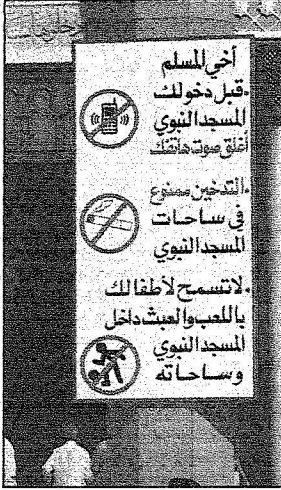 أخي المسلم
.قبل دخولك
المسجد النبوي
أغلق صوت هاتفك
.التدخين ممنوع
في ساحات
المسجد النبوي
.لاتسمح لأطفالك
باللعب والعبث داخل
المسجد النبوي
وساحاته